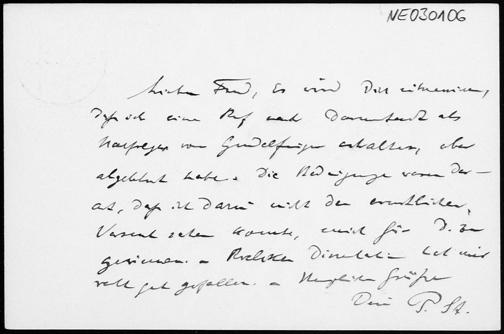 NE030106
Lieber Fred, Es wird Dich interessieren,
daß ich einen Ruf nach Darmstadt als
Nachfolger von Gundelfinger erhalten, aber
abgelehnt habe. Die Bedingungen waren der-
art, daß ich darin nicht den ernstlichen
Versuch sehen konnte, mich für D. zu
gewinnen. – Dissertation hat mir
recht gut gefallen. – Herzliche Grüße
Dein P. St.